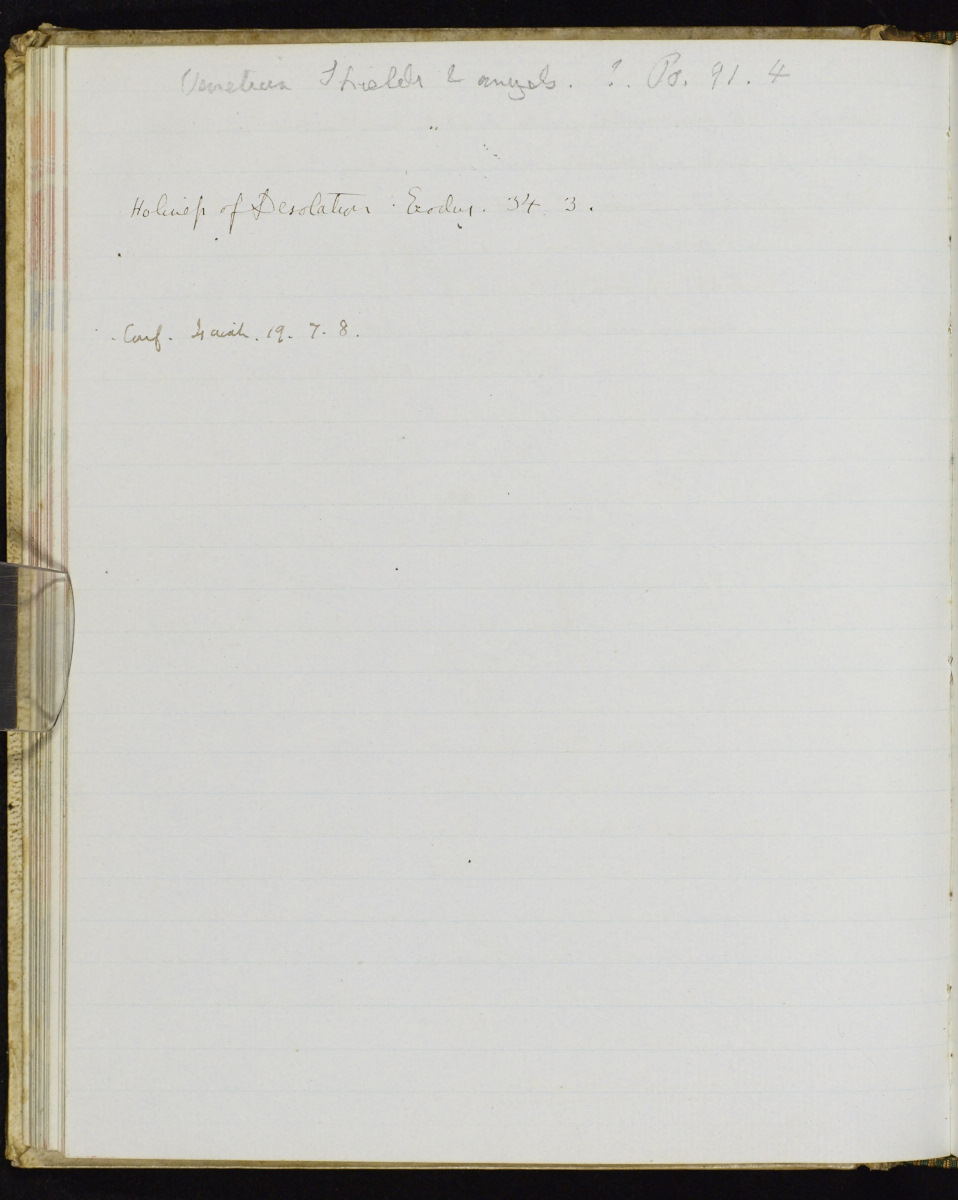 Venetian Shields & angels. ?. Ps. 91. 4
Holiness of Desolation. Exodus. 34. 3.
Conf. Isaiah. 19. 7. 8.